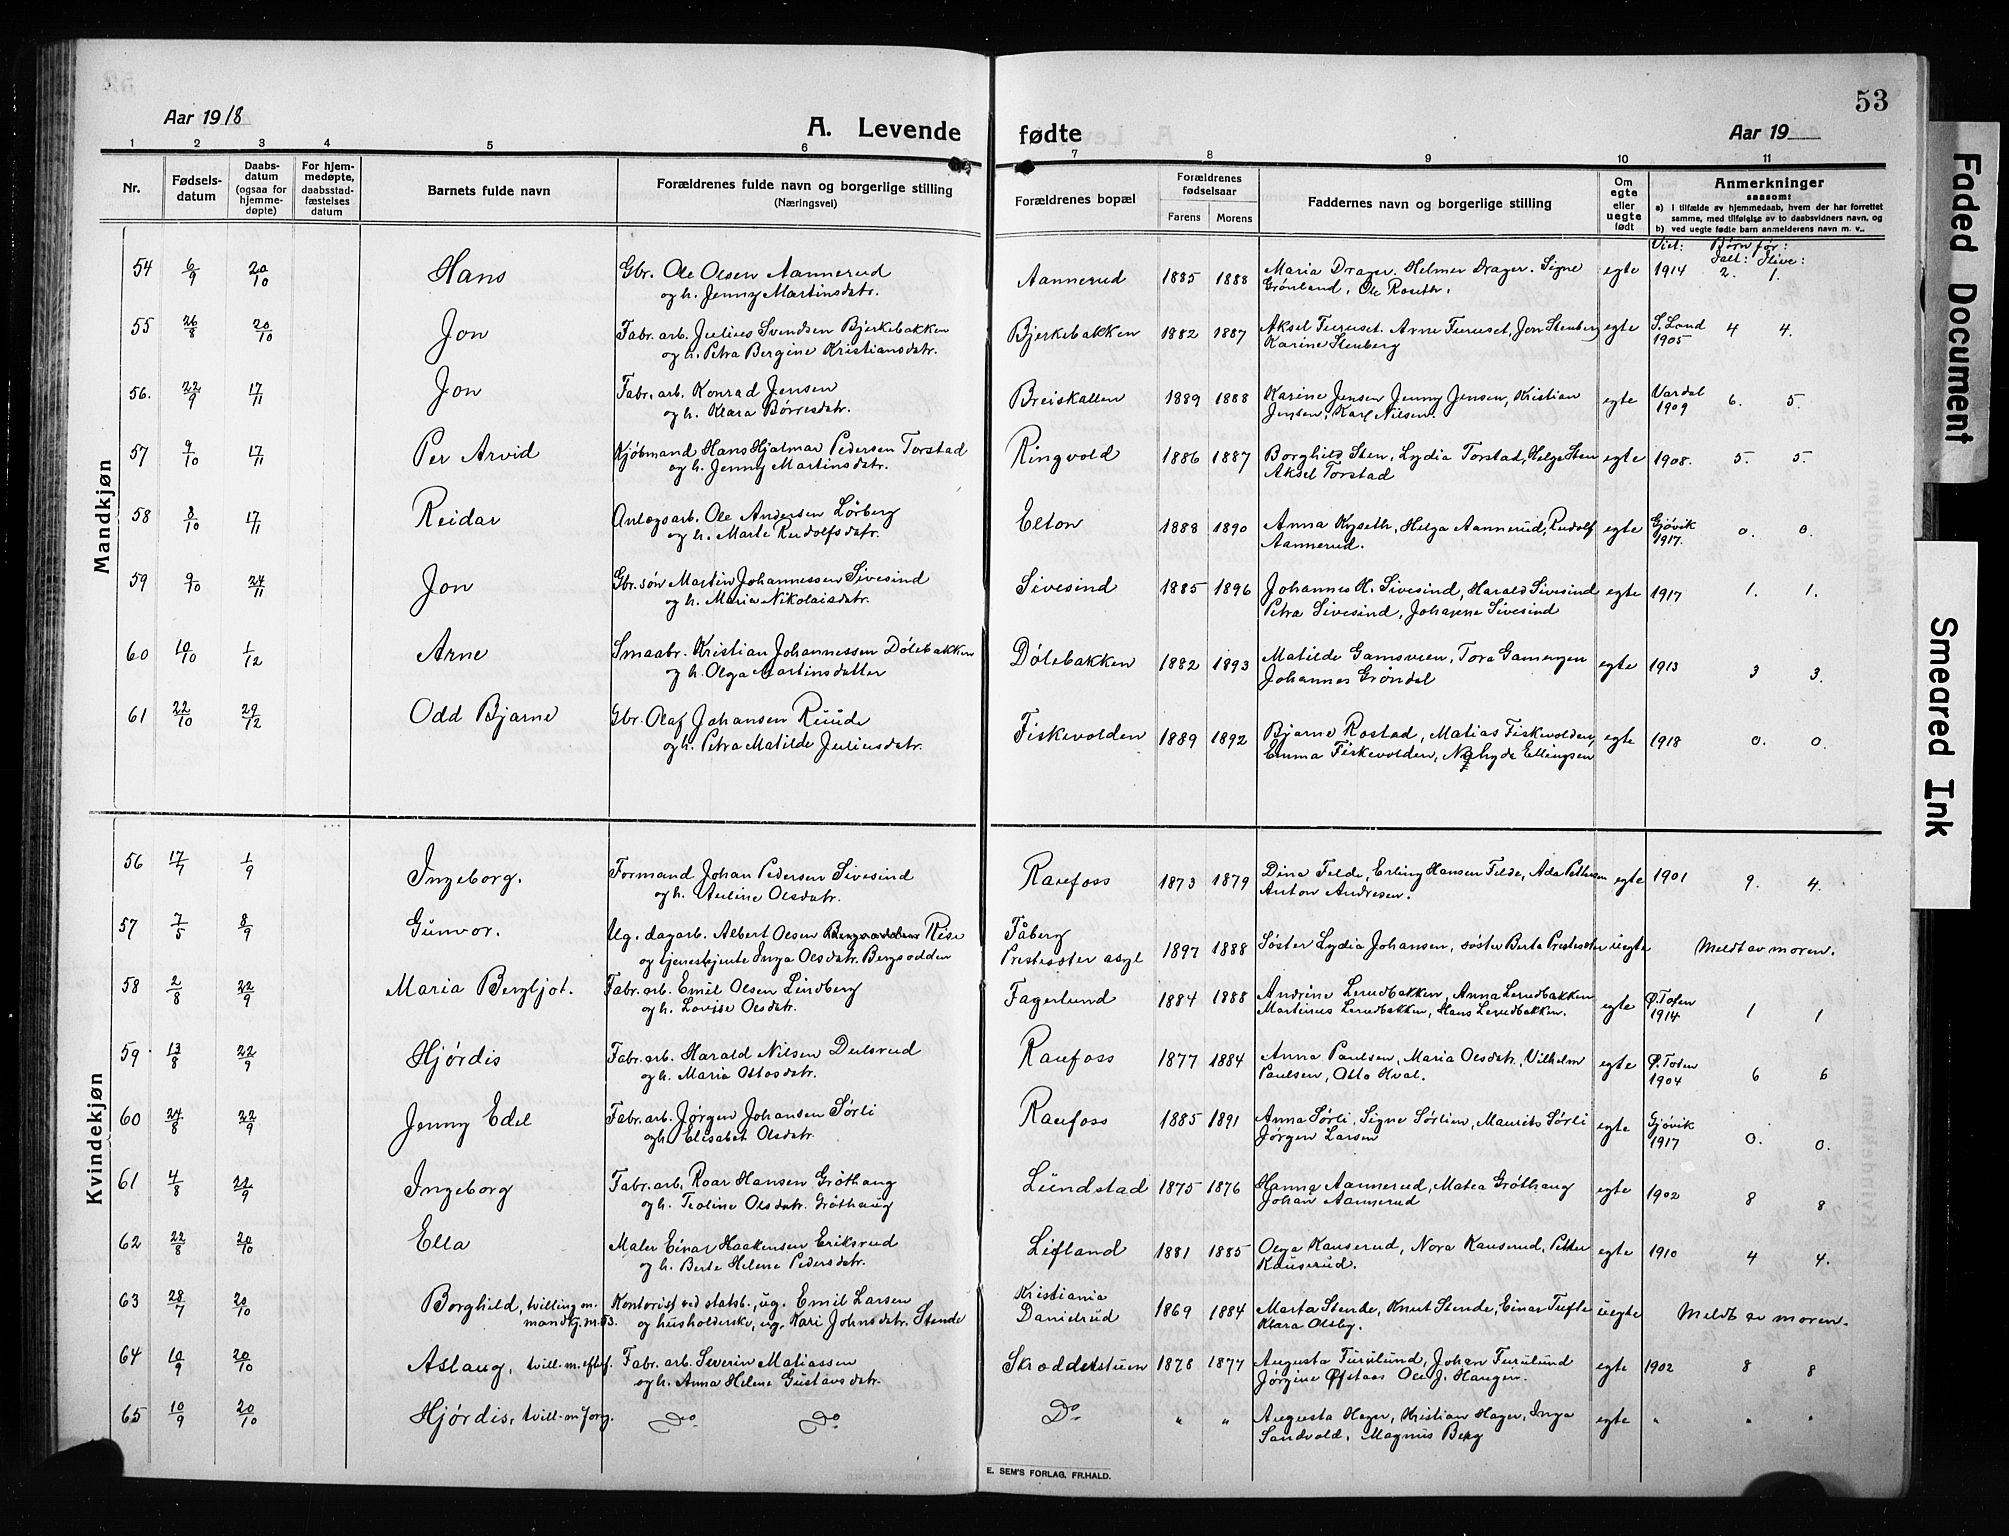 53
Aar 1918 A. Levende fødte Aar 19
1 2 3 4 5 6 7 8 9 10 11
Nr. Fødsels-datum Daabs-datum (ogsaa for hjemme-døpte) For hjem-medøpte, daabsstad-fæstelses datum Barnets fulde navn Forældrenes fulde navn og borgerlige stilling (Næringsvei) Forældrenes bopæl Forældrenes fødselsaar Farens Morens Faddernes navn og borgerlige stilling Om egte eller uegte født Anmerkninger saasom:
a) I tilfælde av hjemmedaab, hvem der har forrettet samme, med tilføielse av to daabsvidners navn, og
b) ved uegte fødte barn anmelderens navn m. v..
Mandkjøn
Viet: Børn før: Ialt: Ilive:
54 6/9 20/10 Hans Gbr. Ole Olsen Aannerud Aannerud 1885 1888 Maria Drager. Helmer Drager. Signe egte 1914 2. 1.
og h. Jenny Martinsdatr. Grönland, Ole Roseth.
55 26/8 20/10 Jon Fabr. arb. Julius Svendsen Bjerkebakken Bjerkebakken 1882 1887 Aksel Furuset. Arne Furuset, Jon Stenberg egte S. Land 1905 4 4.
og h. Petra Bergine Kristiansdatr. Karine Stenberg
56. 22/9 17/11 Jon Fabr. arb. Konrad Jensen Breiskallen 1889 1888 Karine Jensen Jenny Jensen, Kristian egte Vardal 1909 6. 5.
og h. Klara Børresdatr. Jensen, Karl Nilsen.
57 9/10 17/11 Per Arvid Kjøbmand Hans Hjalmar Pedersen Torstad Ringvold 1886 1887 Borghild Sten, Lydia Torstad, Helge Sten egte 1908. 5. 5.
og h. Jenny Martinsdatr. Aksel Torstad
58 8/10 17/11 Reidar Anlægsarb. Ole Andersen Lørberg Elton 1888 1890 Anna Kyseth, Helga Aannerud, Rudolf egte Gjøvik 1917. 0. 0.
og h. Marte Rudolfsdatr. Aannerud.
59 9/10 24/11 Jon Gbr. søn Martin Johannessen Sivesind Sivesind 1885 1896 Johannes H. Sivesind, Harald Sivesind egte 1917 1. 1.
og h. Maria Nikolaisdatr. Petra Sivesind, Johanne Sivesind
60 10/10 1/12 Arne Smaabr. Kristian Johannessen Dölebakken Dölebakken 1882 1893 Matilde Gamsveen, Tora egte 1913 3 3.
og h. Olga Martinsdatter Johannes Grøndal
61 22/10 29/12 Odd Bjarne Gbr. Olaf Johansen Ruude Fiskevolden 1889 1892 Bjarne Rostad, Matias Fiskevolden, egte 1918 0. 0.
og h. Petra Matilde Juliusdatr. Emma Fiskevolden, Ellingsen
Kvindekjøn
56 17/7 1/9 Ingeborg. Formand Johan Pedersen Sivesind Raufoss 1873 1879 Dina Felde, Erling Hansen Felde, Ada Pettersen egte 1901 9. 4.
og h. Auline Olsdatr. Anton Andresen.
57 7/5 8/9 Gunvor. Ug. dagarb. Albert Olsen Rise Fåberg 1897 1888 Søster Lydia Johansen, søster Berta Prestesæter uegte Meldt av moren.
og tjenestejente Inga Olsdatr. Bergsodden Prestesæter asyl
58 2/8 22/9 Maria Bergljot. Fabr. arb. Emil Olsen Lindberg Fagerlund 1884 1888 Andrine Lerudbakken, Anna Lerudbakken egte Ø. Toten 1914 1 1
og h. Lovise Olsdatr. Martinus Lerudbakken, Hans Lerudbakken.
59 13/8 22/9 Hjørdis Fabr. arb. Harald Nilsen Dulsrud Raufoss 1877 1884 Anna Paulsen, Maria Olsdatr., Vilhelm egte Ø. Toten 1904 6 6
og h. Maria Ottosdatr. Paulsen, Otto Hval.
60 24/8 22/9 Jenny Edel Fabr. arb. Jørgen Johansen Sørli Raufoss 1885 1891 Anna Sørli, Signe Sørlien, Maurits Sørli egte Gjøvik 1917 0. 0.
og h. Elisabet Olsdatr. Jørgen Larsen
61 4/8 22/9 Ingeborg Fabr. arb. Roar Hansen Gröthaug Lundstad 1875 1876 Hanna Aannerud, Matea Gröthaug egte 1902 8 8
og h. Teoline Olsdatr. Gröthaug Johan Aannerud
62 22/8 20/10 Ella Maler Einar Haakensen Eriksrud Lifland 1881 1885 Olga Kauserud, Nora Kauserud, Petter egte 1910 4 4.
og h. Berte Helene Pedersdatr. Kauserud.
63 28/7 20/10 Borghild, tvilling m. Kontorist ved statsb., ug. Emil Larsen Kristiania 1869 1884 Marta Stende, Knut Stende, Einar Tufte uegte Meldt av moren.
mandkj. nr. 53. og husholderske, ug. Kari Johnsdatr. Stende Danielrud Klara Olsby.
64 10/9 20/10 Aslaug, tvill. m. efterf. Fabr. arb. Severin Matiassen Skrodderstuen 1878 1877 Augusta Furulund, Johan Furulund egte 1902 8 8
og h. Anna Helene Gustavsdatr. Jørgine Øfstaas Ole J. Haugen.
65 10/9 20/10 Hjørdis, tvill. m. forg. Do Do Do " " Augusta Hager, Kristian Hager, Inga egte " " "
Sandvold, Magnus Berg
E. SEM'S FORLAG, FR.HALD.
Faded Document
Smeared Ink